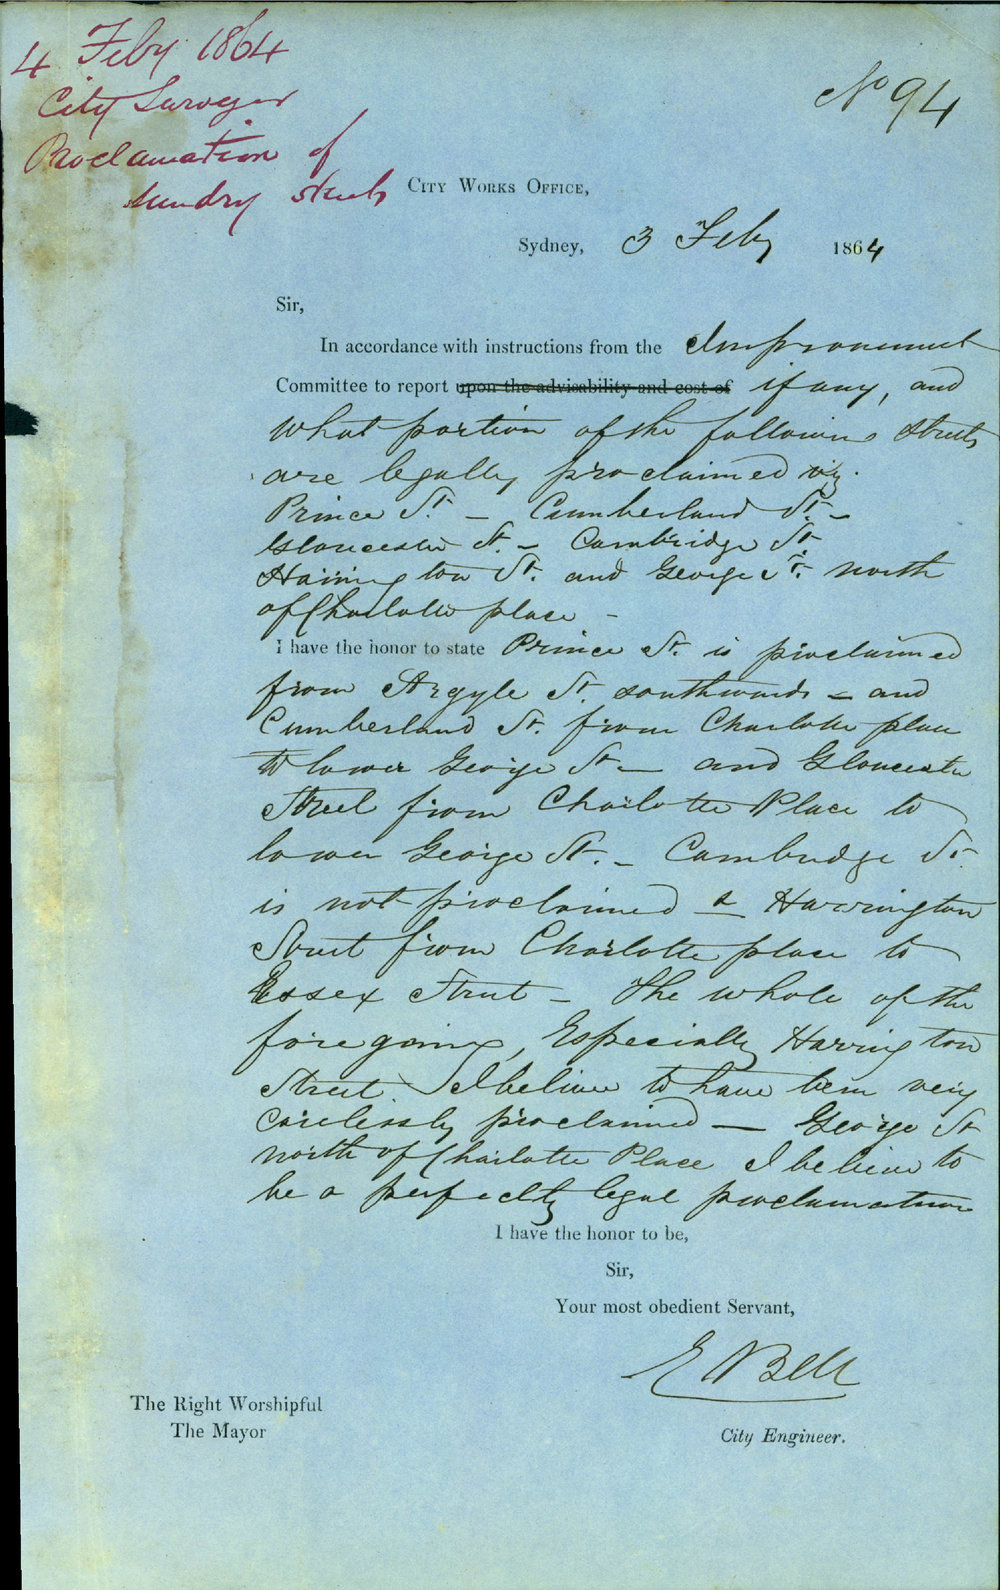 4 Feby 1864
City Surveyor
Proclamation of
sundry streets
No 94
City Works Office,
Sydney, 3 Feby 1864
Sir,
In accordance with instructions from the Improvement
Committee to report upon the advisability and cost of if any, and
what portion of the following streets
are legally proclaimed viz.
Prince St. – Cumberland St. –
Gloucester St. – Cambridge St.
Harrington St. and George St. north
of Charlotte place –
I have the honor to state Prince St. is proclaimed
from Argyle St. southwards – and
Cumberland St. from Charlotte place
to lower George St – and Gloucester
Street from Charlotte Place to
lower George St. – Cambridge St.
is not proclaimed & Harrington
Street from Charlotte place to
Essex Street – The whole of the
foregoing, Especially Harrington
Street I believe to have been very
carelessly proclaimed – George St
north of Charlotte Place I believe to
be a perfectly legal proclamation
I have the honor to be,
Sir,
Your most obedient Servant,
E Bell
The Right Worshipful
The Mayor
City Engineer.